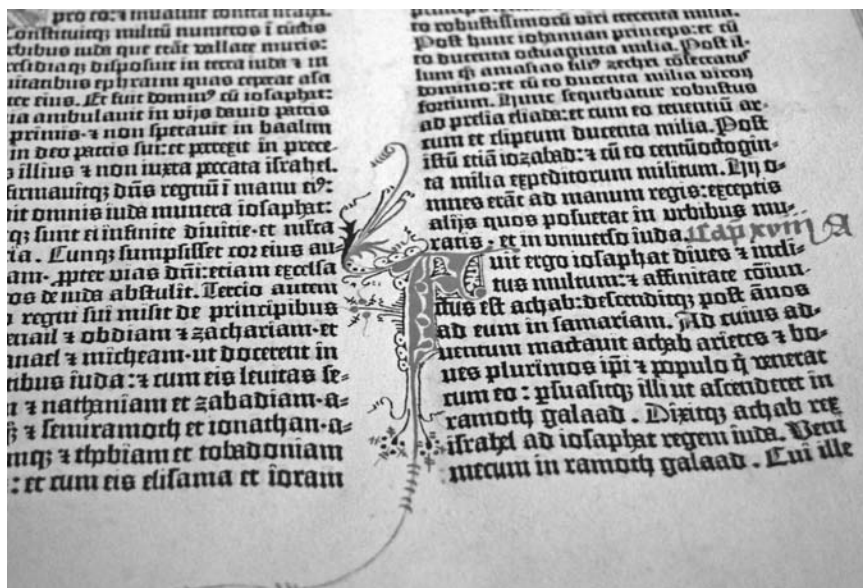 pro eo: ⁊ inualuit contra
Constituitqꝫ militū numeros ī cūctis
vrbibus iuda que erāt vallate muris:
esidiaqꝫ disposuit in terra iuda ⁊ in
uitatibus ephraim quas ceperat asa
ter eius. Et fuit domin⁹ cū iosaphat:
ia ambulauit in vijs dauid patris
primis· ⁊ non sperauit in baalim
in deo patris sui: et perrexit in prece-
s illius ⁊ non iuxta peccata israhel.
firmauitqꝫ dn̄s regnū ī manu ei⁹:
it omnis iuda munera iosaphat:
qꝫ sunt ei infinite diuitie· et
ia. Cunqꝫ sumpsisset cor eius au-
am· ꝓpter vias dn̄i: etiam excelsa
os de iuda abstulit. Tercio autem
regni sui misit de principibus
enail ⁊ obdiam ⁊ zachariam· et
anael ⁊ micheam· ut docerent in
tibus iuda: ⁊ cum eis leuitas se-
⁊ nathaniam et zabadiam· a-
⁊ semiramoth et ionathan· a-
mqꝫ ⁊ thobiam et tobadoniam
: et cum eis elisama et ioram
to robustissimorū viri trecenta milia.
Post hunc iohannan princeps: et cū
eo ducenta octuaginta milia. Post il-
lum q̄ȝ amasias fili⁹ zechri cōsecratus
domino: et cū eo ducenta milia virorū
fortium. Hunc sequebatur robustus
ad prelia eliada: et cum eo tenentiū ar-
cum et clipeum ducenta milia. Post
istū etiā iozabad: ⁊ cū eo centūoctogin-
ta milia expeditorum militum. Hij o-
mnes erāt ad manum regis: exceptis
alijs quos posuerat in vrbibus mu-
ratis· et in vniuerso iuda. Cap xviii
Fuit ergo iosaphat diues ⁊ incli-
tus multum: ⁊ affinitate cōiun-
ctus est achab: descenditqꝫ post ānos
ad eum in samariam. Ad cuius ad-
uentum mactauit achab arietes ⁊ bo-
ues plurimos ip̄i ⁊ populo q̇ venerat
cum eo: ꝑsuasitqꝫ illi ut ascenderet in
ramoth galaad. Dixitqꝫ achab rex
israhel ad iosaphat regem iuda. Veni
mecum in ramoth galaad. Cui ille